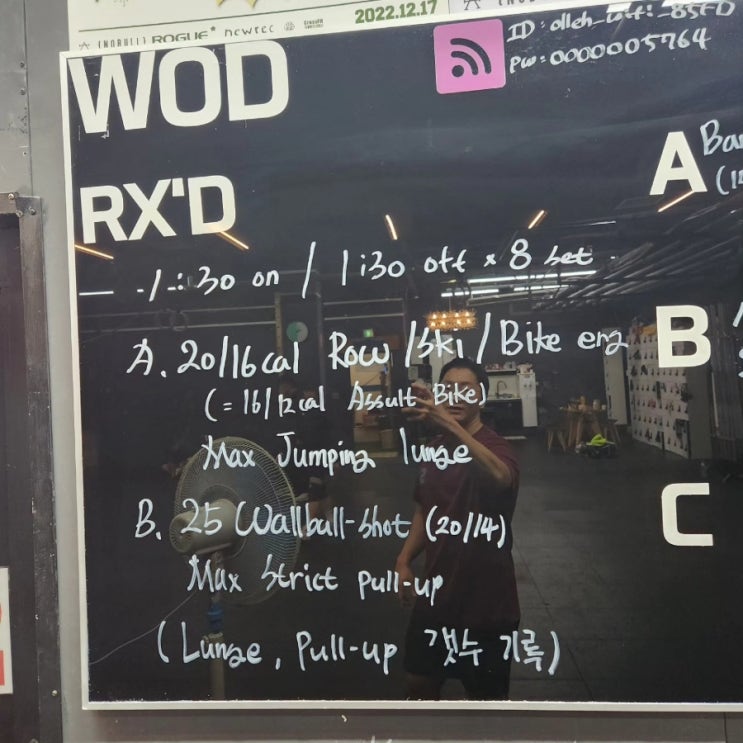 2022.12.17
[NOBULL] ROGUE
WOD
ID: olleh_wifi_85FD
PW: 0000005764
RX'D
-1:30 on / 1:30 off × 8 set -
A. 20/16cal Row /Ski / Bike erg
(= 16/12cal Assult Bike)
Max Jumping lunge
B. 25 Wallball-shot (20/14)
Max Strict pull-up
(Lunge, Pull-up 갯수 기록)
A
B
C